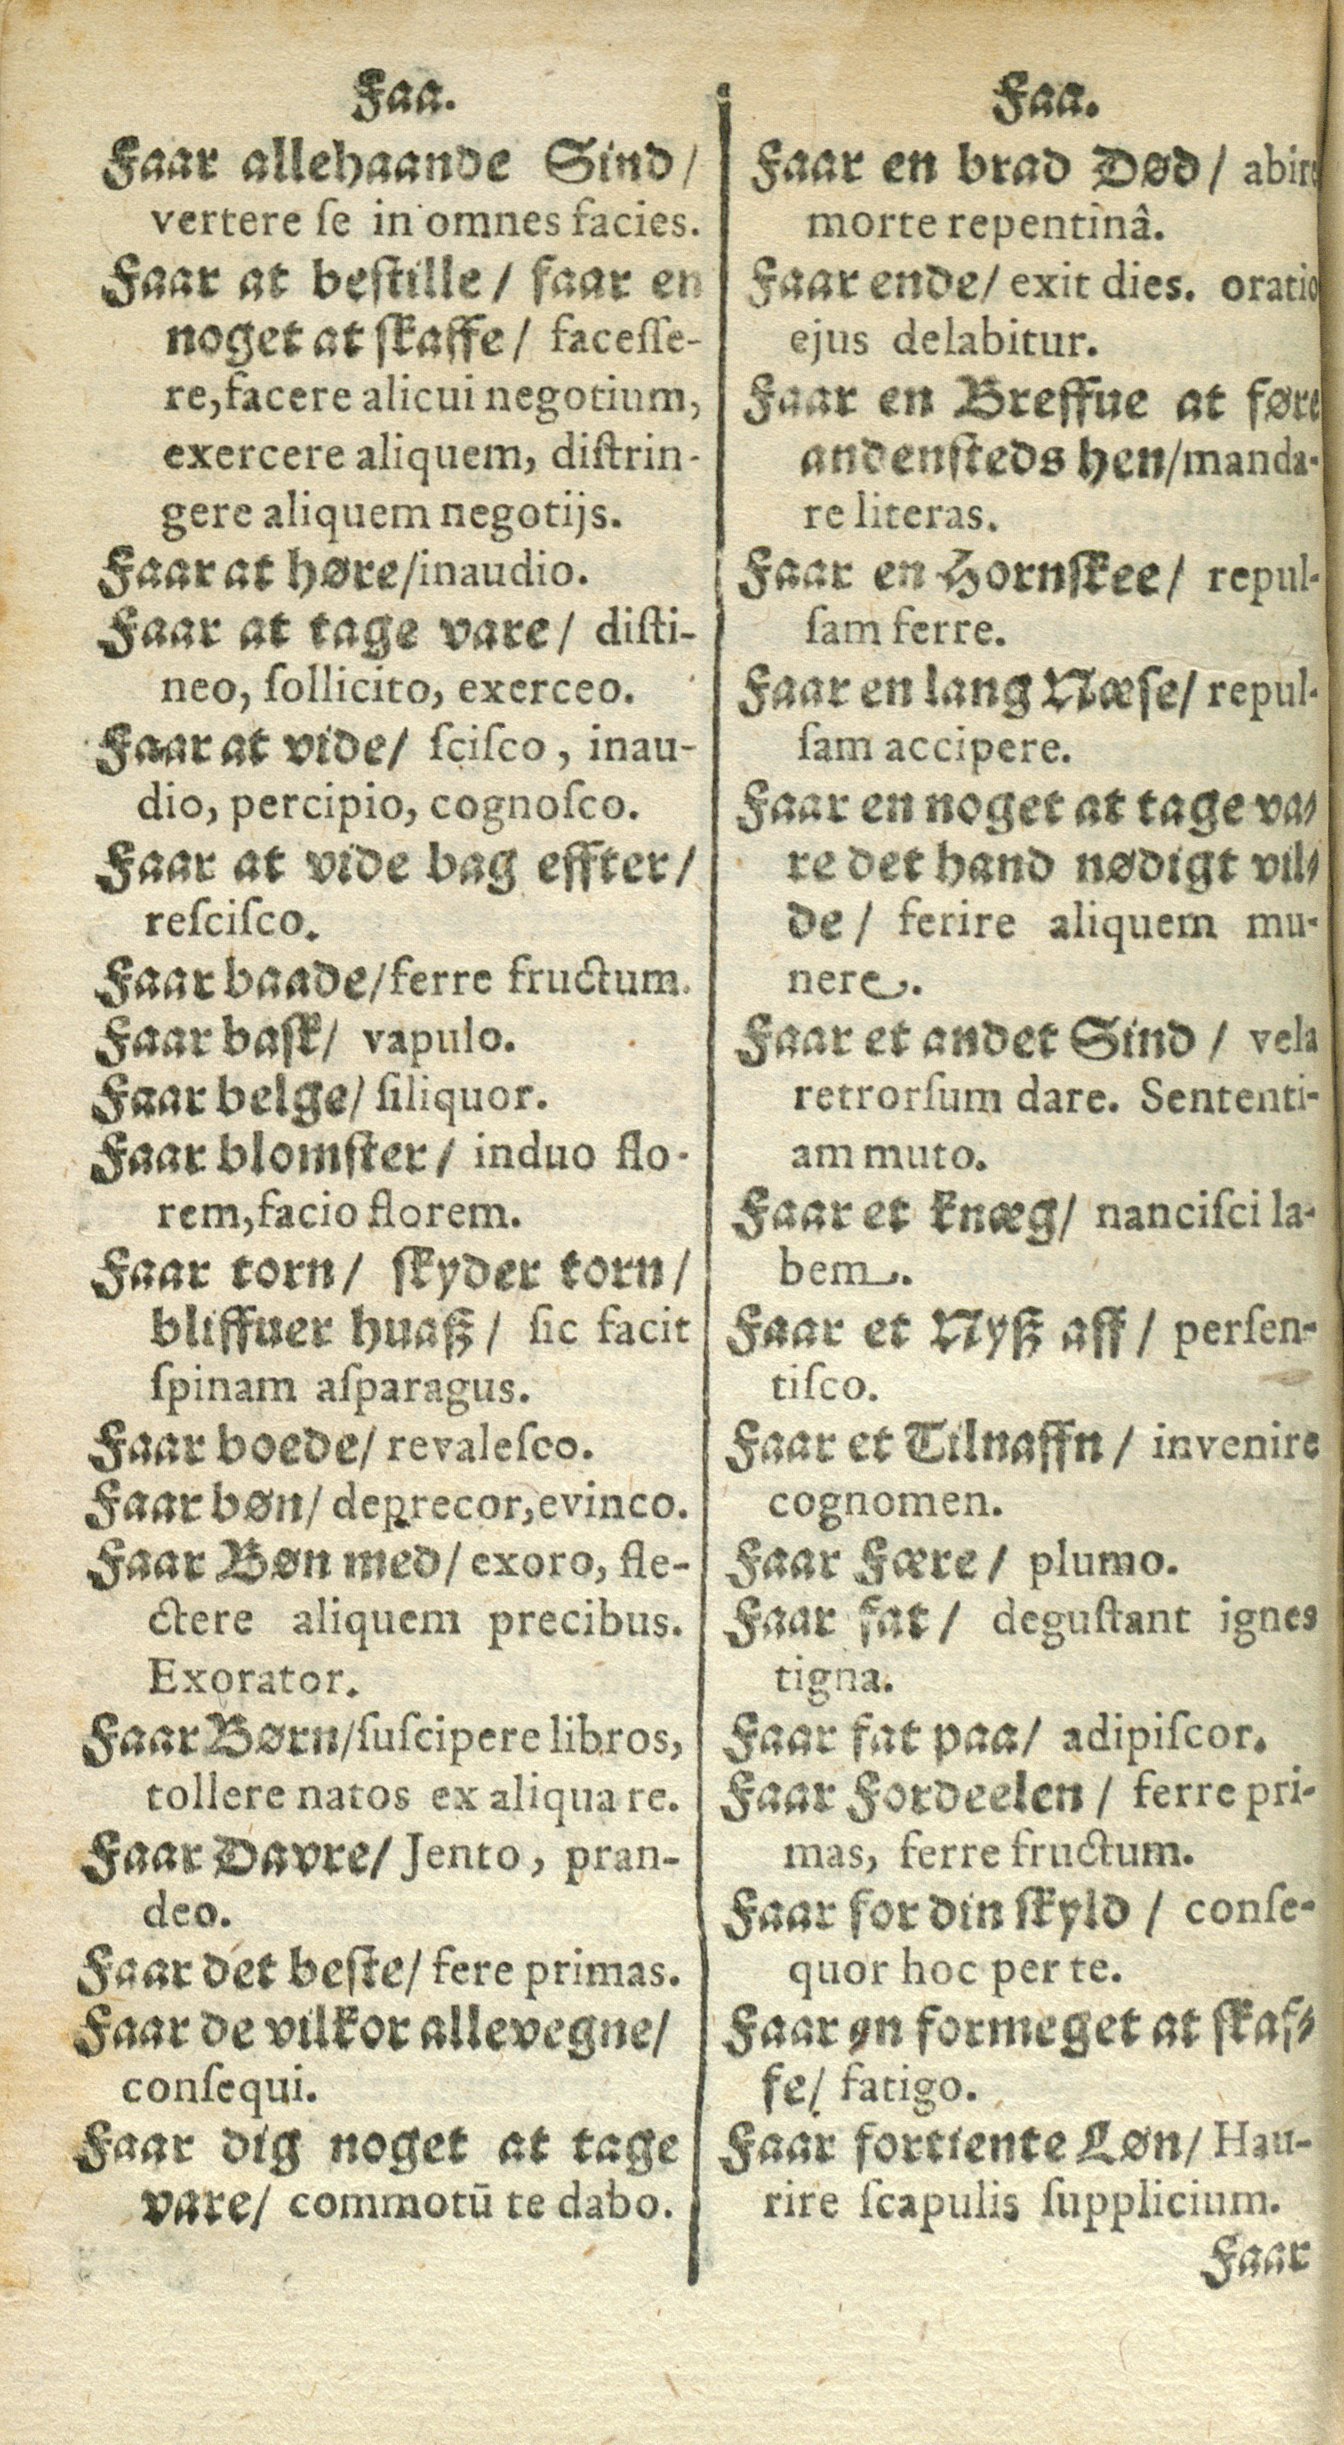 Faa.
Faar allehaande Sind/
vertere ſe in omnes facies.
Faar at beſtille/ faar en
noget at ſkaffe/ faceſſe-
re, facere alicui negotium,
exercere aliquem, diſtrin-
gere aliquem negotijs.
Faar at høre/inaudio.
Faar at tage vare/ diſti-
neo, ſollicito, exerceo.
Faar at vide/ ſciſco, inau-
dio, percipio, cognoſco.
Faar at vide bag effter/
reſciſco.
Faar baade/ferre fructum.
Faar baſk/ vapulo.
Faar belge/ ſiliquor.
Faar blomſter/ induo flo-
rem, facio florem.
Faar torn/ ſkyder torn/
bliffuer huaß/ ſic facit
ſpinam aſparagus.
Faar boede/ revaleſco.
Faar bøn/ deprecor, evinco.
Faar Bøn med/ exoro, fle-
ctere aliquem precibus.
Exorator.
Faar Børn/ſuſcipere libros,
tollere natos ex aliqua re.
Faar Davre/ Jento, pran-
deo.
Faar det beſte/ fere primas.
Faar de vilkor allevegne/
conſequi.
Faar dig noget at tage
vare/ commotū te dabo.
Faa.
Faar en brad Død/ abire
morte repentinâ.
Faar ende/ exit dies. oratio
ejus delabitur.
Faar en Breffue at føre
andenſteds hen/manda-
re literas.
Faar en Hornſkee/ repul-
ſam ferre.
Faar en lang Næſe/ repul-
ſam accipere.
Faar en noget at tage va-
re det hand nødigt vil-
de/ ferire aliquem mu-
nere.
Faar et andet Sind/ vela
retrorſum dare. Sententi-
am muto.
Faar et knæg/ nanciſci la-
bem.
Faar et Nyß aff/ perſen-
tiſco.
Faar et Tilnaffn/ invenire
cognomen.
Faar Fære/ plumo.
Faar fat/ deguſtant ignes
tigna.
Faar fat paa/ adipiſcor.
Faar Fordeelen/ ferre pri-
mas, ferre fructum.
Faar for din ſkyld/ conſe-
quor hoc per te.
Faar en formeget at ſkaf-
fe/ fatigo.
Faar fortiente Løn/ Hau-
rire ſcapulis ſupplicium.
Faar